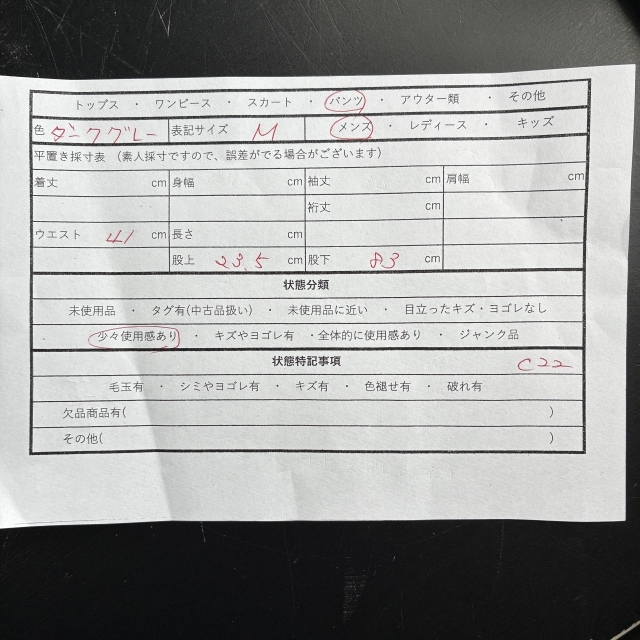 トップス ・ ワンピース ・ スカート ・ パンツ ・ アウター類 ・ その他
色 ダークグレー 表記サイズ M メンズ ・ レディース ・ キッズ
平置き採寸表 （素人採寸ですので、誤差がでる場合がございます）
着丈 cm 身幅 cm 袖丈 cm 肩幅 cm
裄丈 cm
ウエスト 41 cm 長さ cm
股上 23.5 cm 股下 83 cm
状態分類
未使用品 ・ タグ有(中古品扱い) ・ 未使用品に近い ・ 目立ったキズ・ヨゴレなし
少々使用感あり ・ キズやヨゴレ有 ・全体的に使用感あり ・ ジャンク品
状態特記事項 C22
毛玉有 ・ シミやヨゴレ有 ・ キズ有 ・ 色褪せ有 ・ 破れ有
欠品商品有( )
その他( )